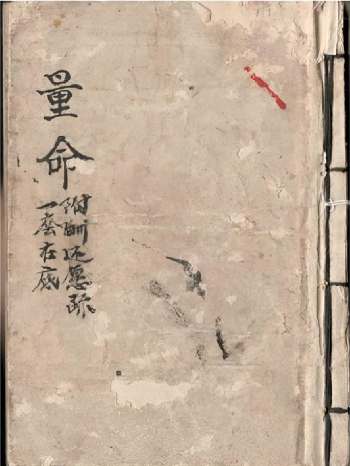 量命
附酬还愿疏
一套在底